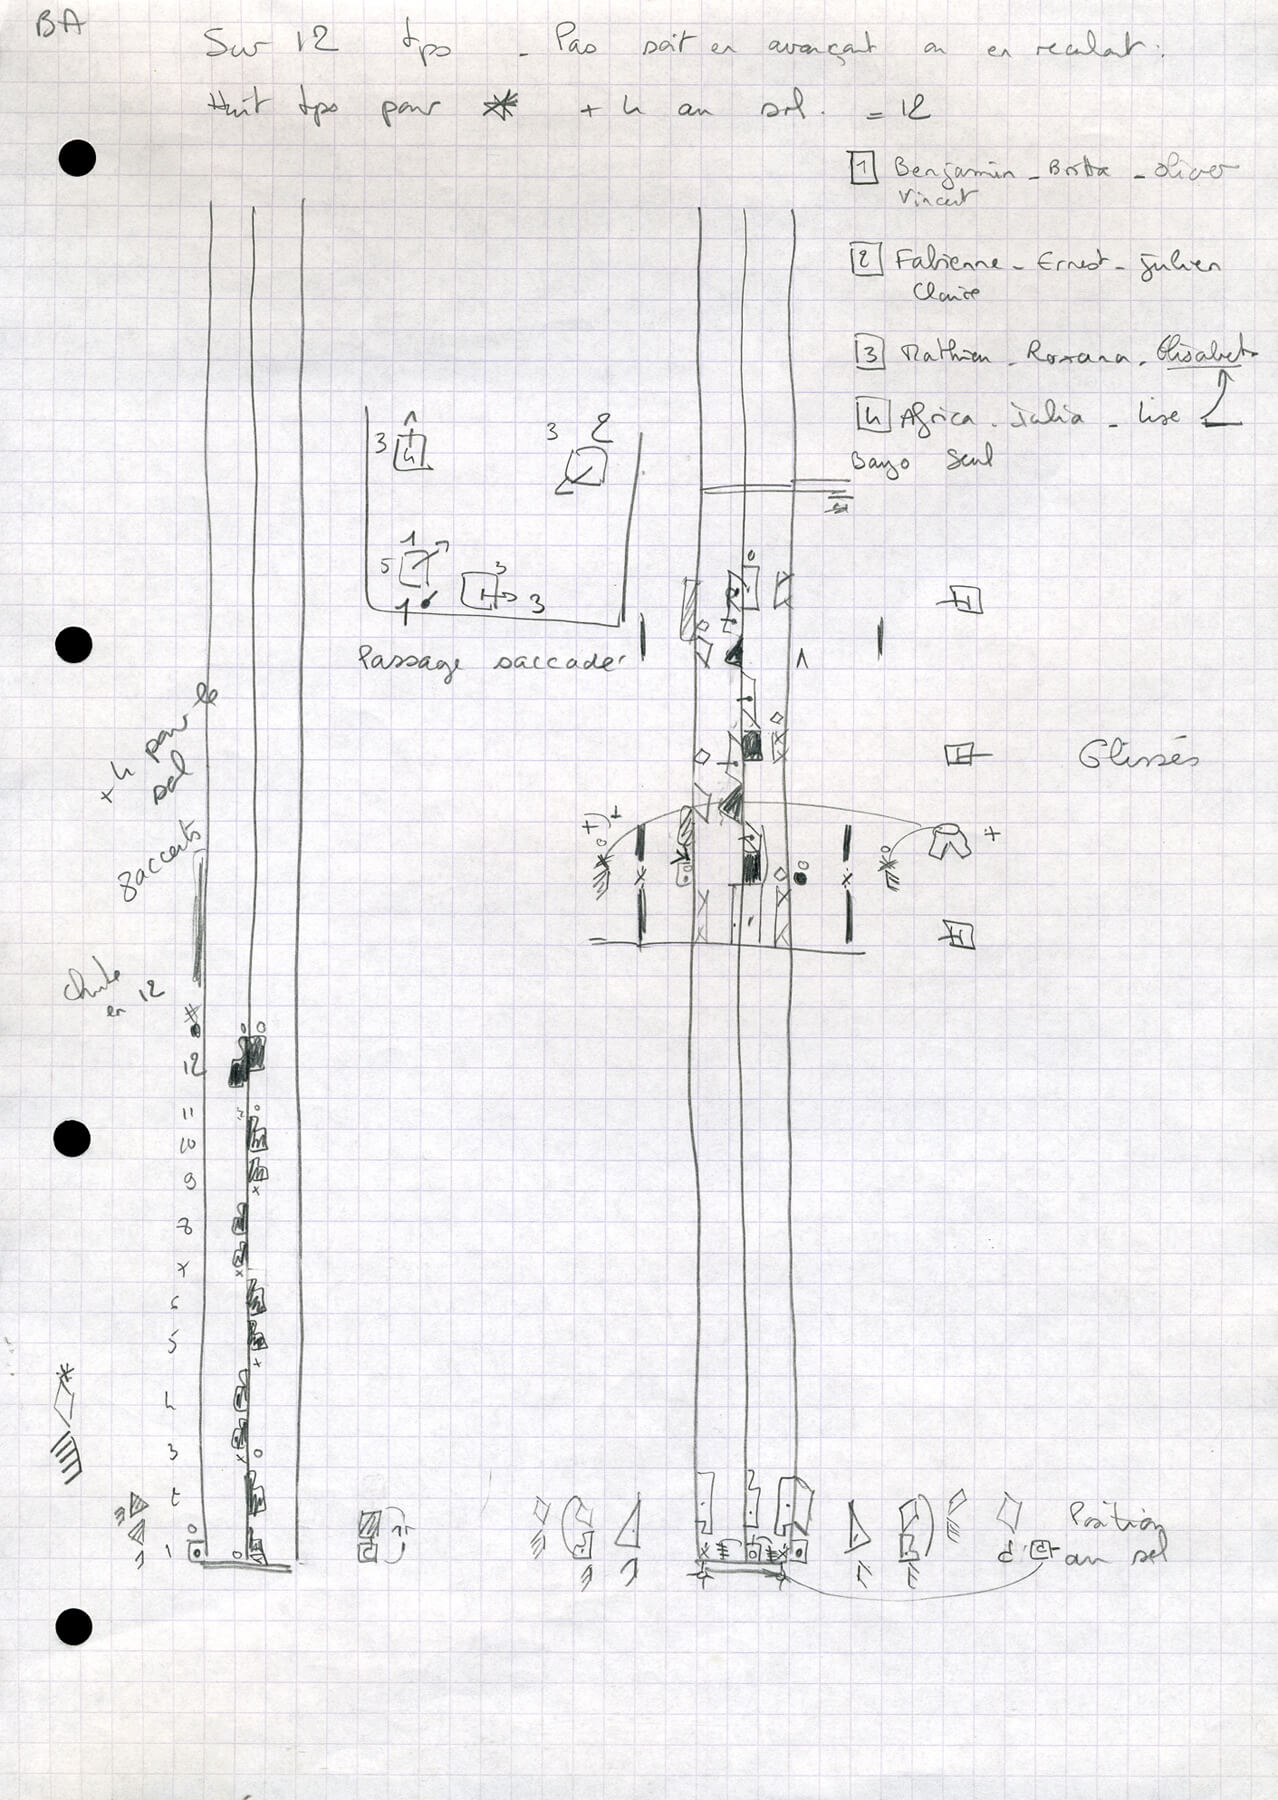 BA
Sur 12 tps - Pas soit en avançant ou en reculant :
Huit tps pour + 4 au sol. = 12
1 Benjamin - Botta - Oliver
Vincent
2 Fabienne - Ernest - Julien
Claire
3 Mathieu - Roxana - Elisabet
4 Africa - Julia - Lise
Banjo Seul
3 4
3 2
5 1
1
3 3
Passage saccadé
+ 4 pour le
sol
8 accents
Chute
en 12
Glissés
12
11
10
9
8
7
6
5
4
3
2
1
Position
au sol